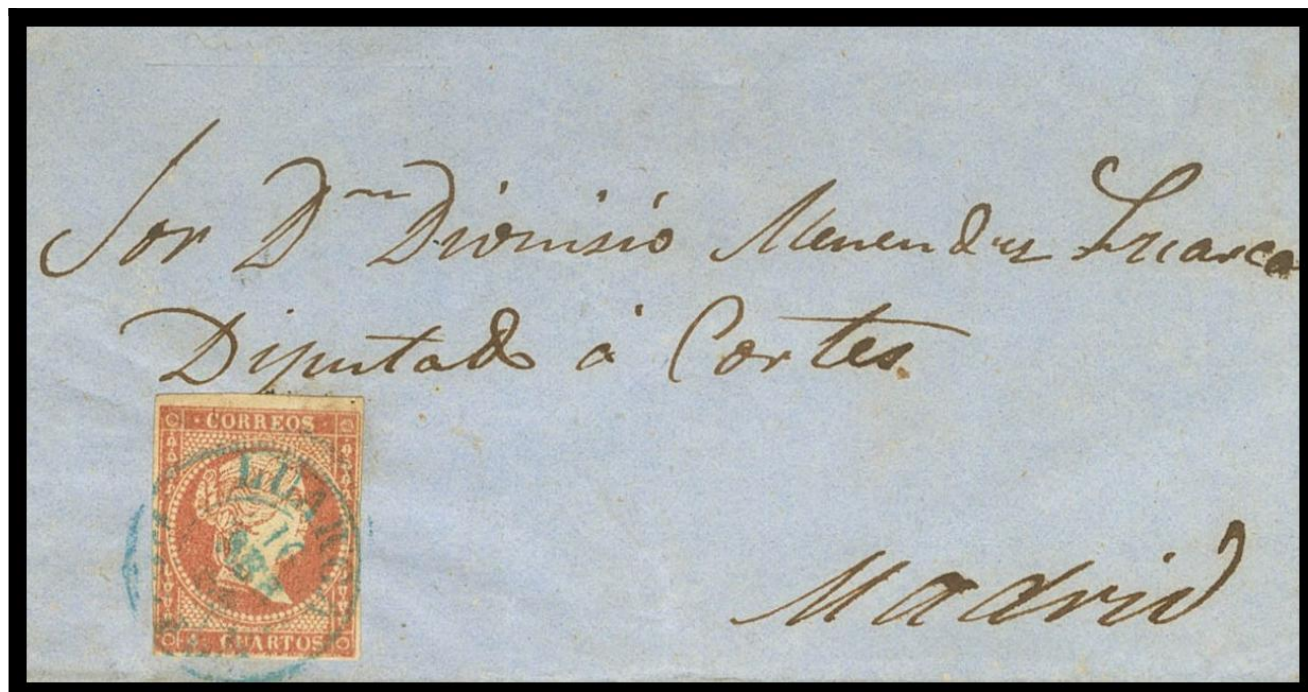 Sor Dn Dionisio Menendez Luarca
Diputado á Cortes
Madrid
CORREOS
LUARCA
10
CUARTOS